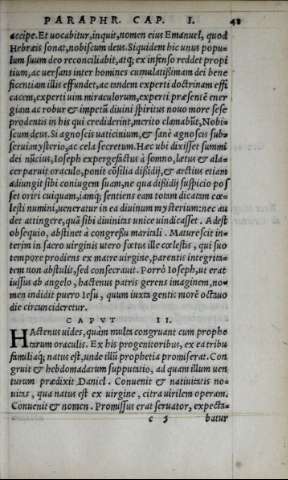 PARAPHR. CAP. I. 42
accipe. Et uocabitur, inquit, nomen eius Emanuel, quod
Hebræis sonat, nobiscum deus. Siquidem hic unus popu-
lum suum deo reconciliabit, atq; ex infenso reddet propi
tium, ac uersans inter homines cumulatißimam dei bene
ficentiam illis effundet, ac tandem experti doctrinam effi
cacem, experti uim miraculorum, experti præsentē ener
giam ac robur & impetū diuini spiritus nouo more sese
prodentis in his qui crediderint, merito clamabūt, Nobi-
scum deus. Si agnoscis uaticinium, & sanè agnoscis sub-
seruimysterio, ac cela secretum. Hæc ubi dixisset summi
dei nūcius, Ioseph expergefactus à somno, lætus & ala-
cer paruit oraculo, ponit cōsilia dißidij, & arctius etiam
adiungit sibi coniugem suam, ne qua dißidij suspicio pos
set oriri cuiquam, iamq; sentiens eam totam dicatam cœ-
lesti numini, ueneratur in ea diuinum mysterium: nec au
det attingere, quā sibi diuinitas unice uindicasset. Adest
obsequio, abstinet à congressu maritali. Maturescit in-
terim in sacro uirginis utero fœtus ille cœlestis, qui suo
tempore prodiens ex matre uirgine, parentis integrita-
tem non abstulit, sed consecrauit. Porrò Ioseph, ut erat
iussus ab angelo, hactenus patris gerens imaginem, no-
men indidit puero Iesu, quum iuxta gentis morē octauo
die circuncideretur.
CAPVT II.
HActenus uides, quàm multa congruant cum prophe
tarum oraculis. Ex his progenitoribus, ex ea tribu
familiaq; natus est, unde illū prophetia promiserat. Con
gruit & hebdomadarum supputatio, ad quam illum uen
turum prædixit Daniel. Conuenit & natiuitatis no-
uitas, qua natus est ex uirgine, citra uirilem operam.
Conuenit & nomen. Promissus erat seruator, expecta-
c 5 batur